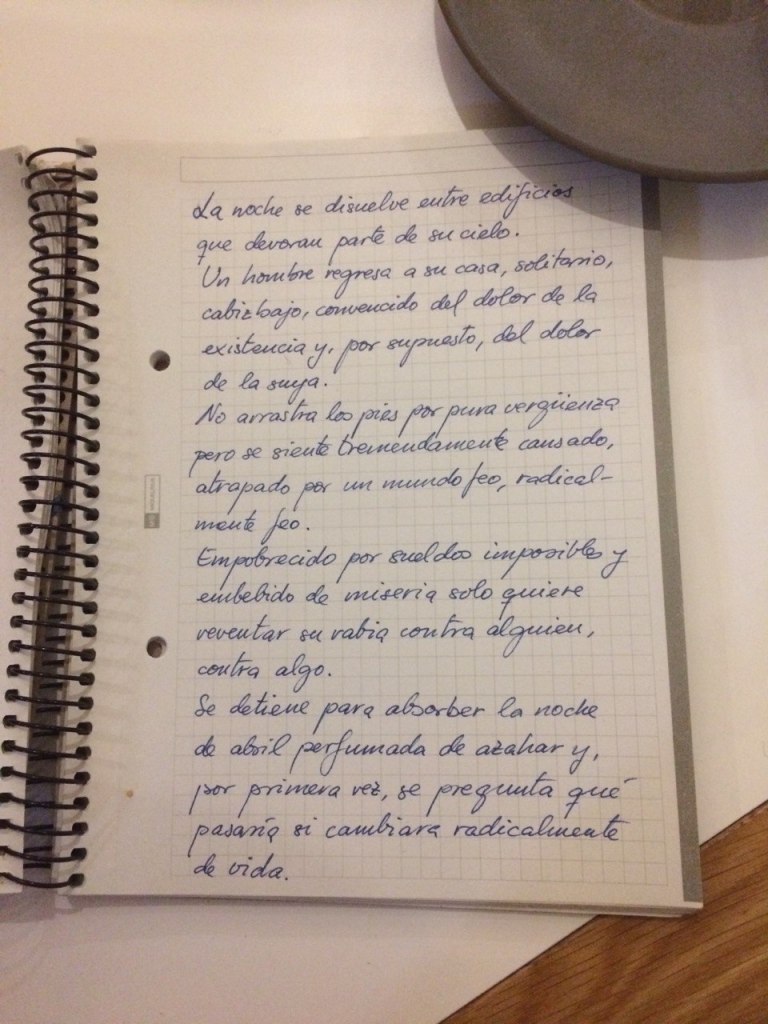 La noche se disuelve entre edificios
que devoran parte de su cielo.
Un hombre regresa a su casa, solitario,
cabizbajo, convencido del dolor de la
existencia y, por supuesto, del dolor
de la suya.
No arrastra los pies por pura vergüenza
pero se siente tremendamente cansado,
atrapado por un mundo feo, radical-
mente feo.
Empobrecido por sueldos imposibles y
embebido de miseria solo quiere
reventar su rabia contra alguien,
contra algo.
Se detiene para absorber la noche
de abril perfumada de azahar y,
por primera vez, se pregunta qué
pasaría si cambiara radicalmente
de vida.